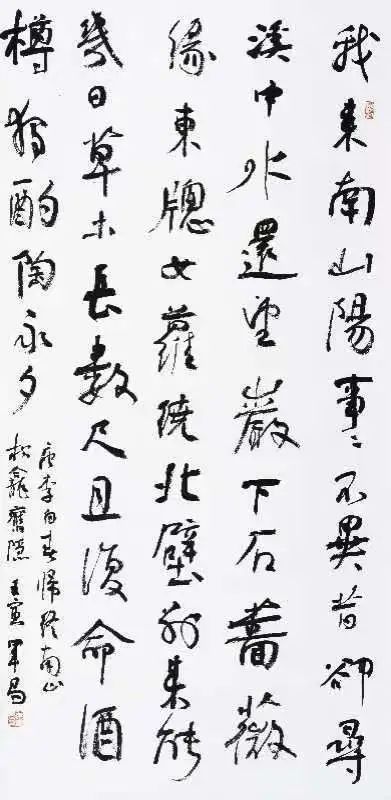 我來南山陽事〻不異昔卻尋
溪中水還望巖下石薔薇
緣東牕女蘿繞北壁別來能
幾日草木長數尺且復命酒
樽獨酌陶永夕
唐李白春歸終南山
松龕舊隱 壬寅